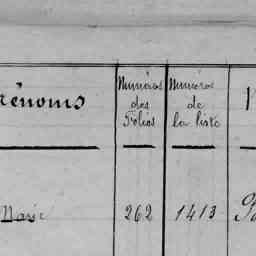 rénoms
Numéros des Folios
Numéros de la liste
Marie
262
1413